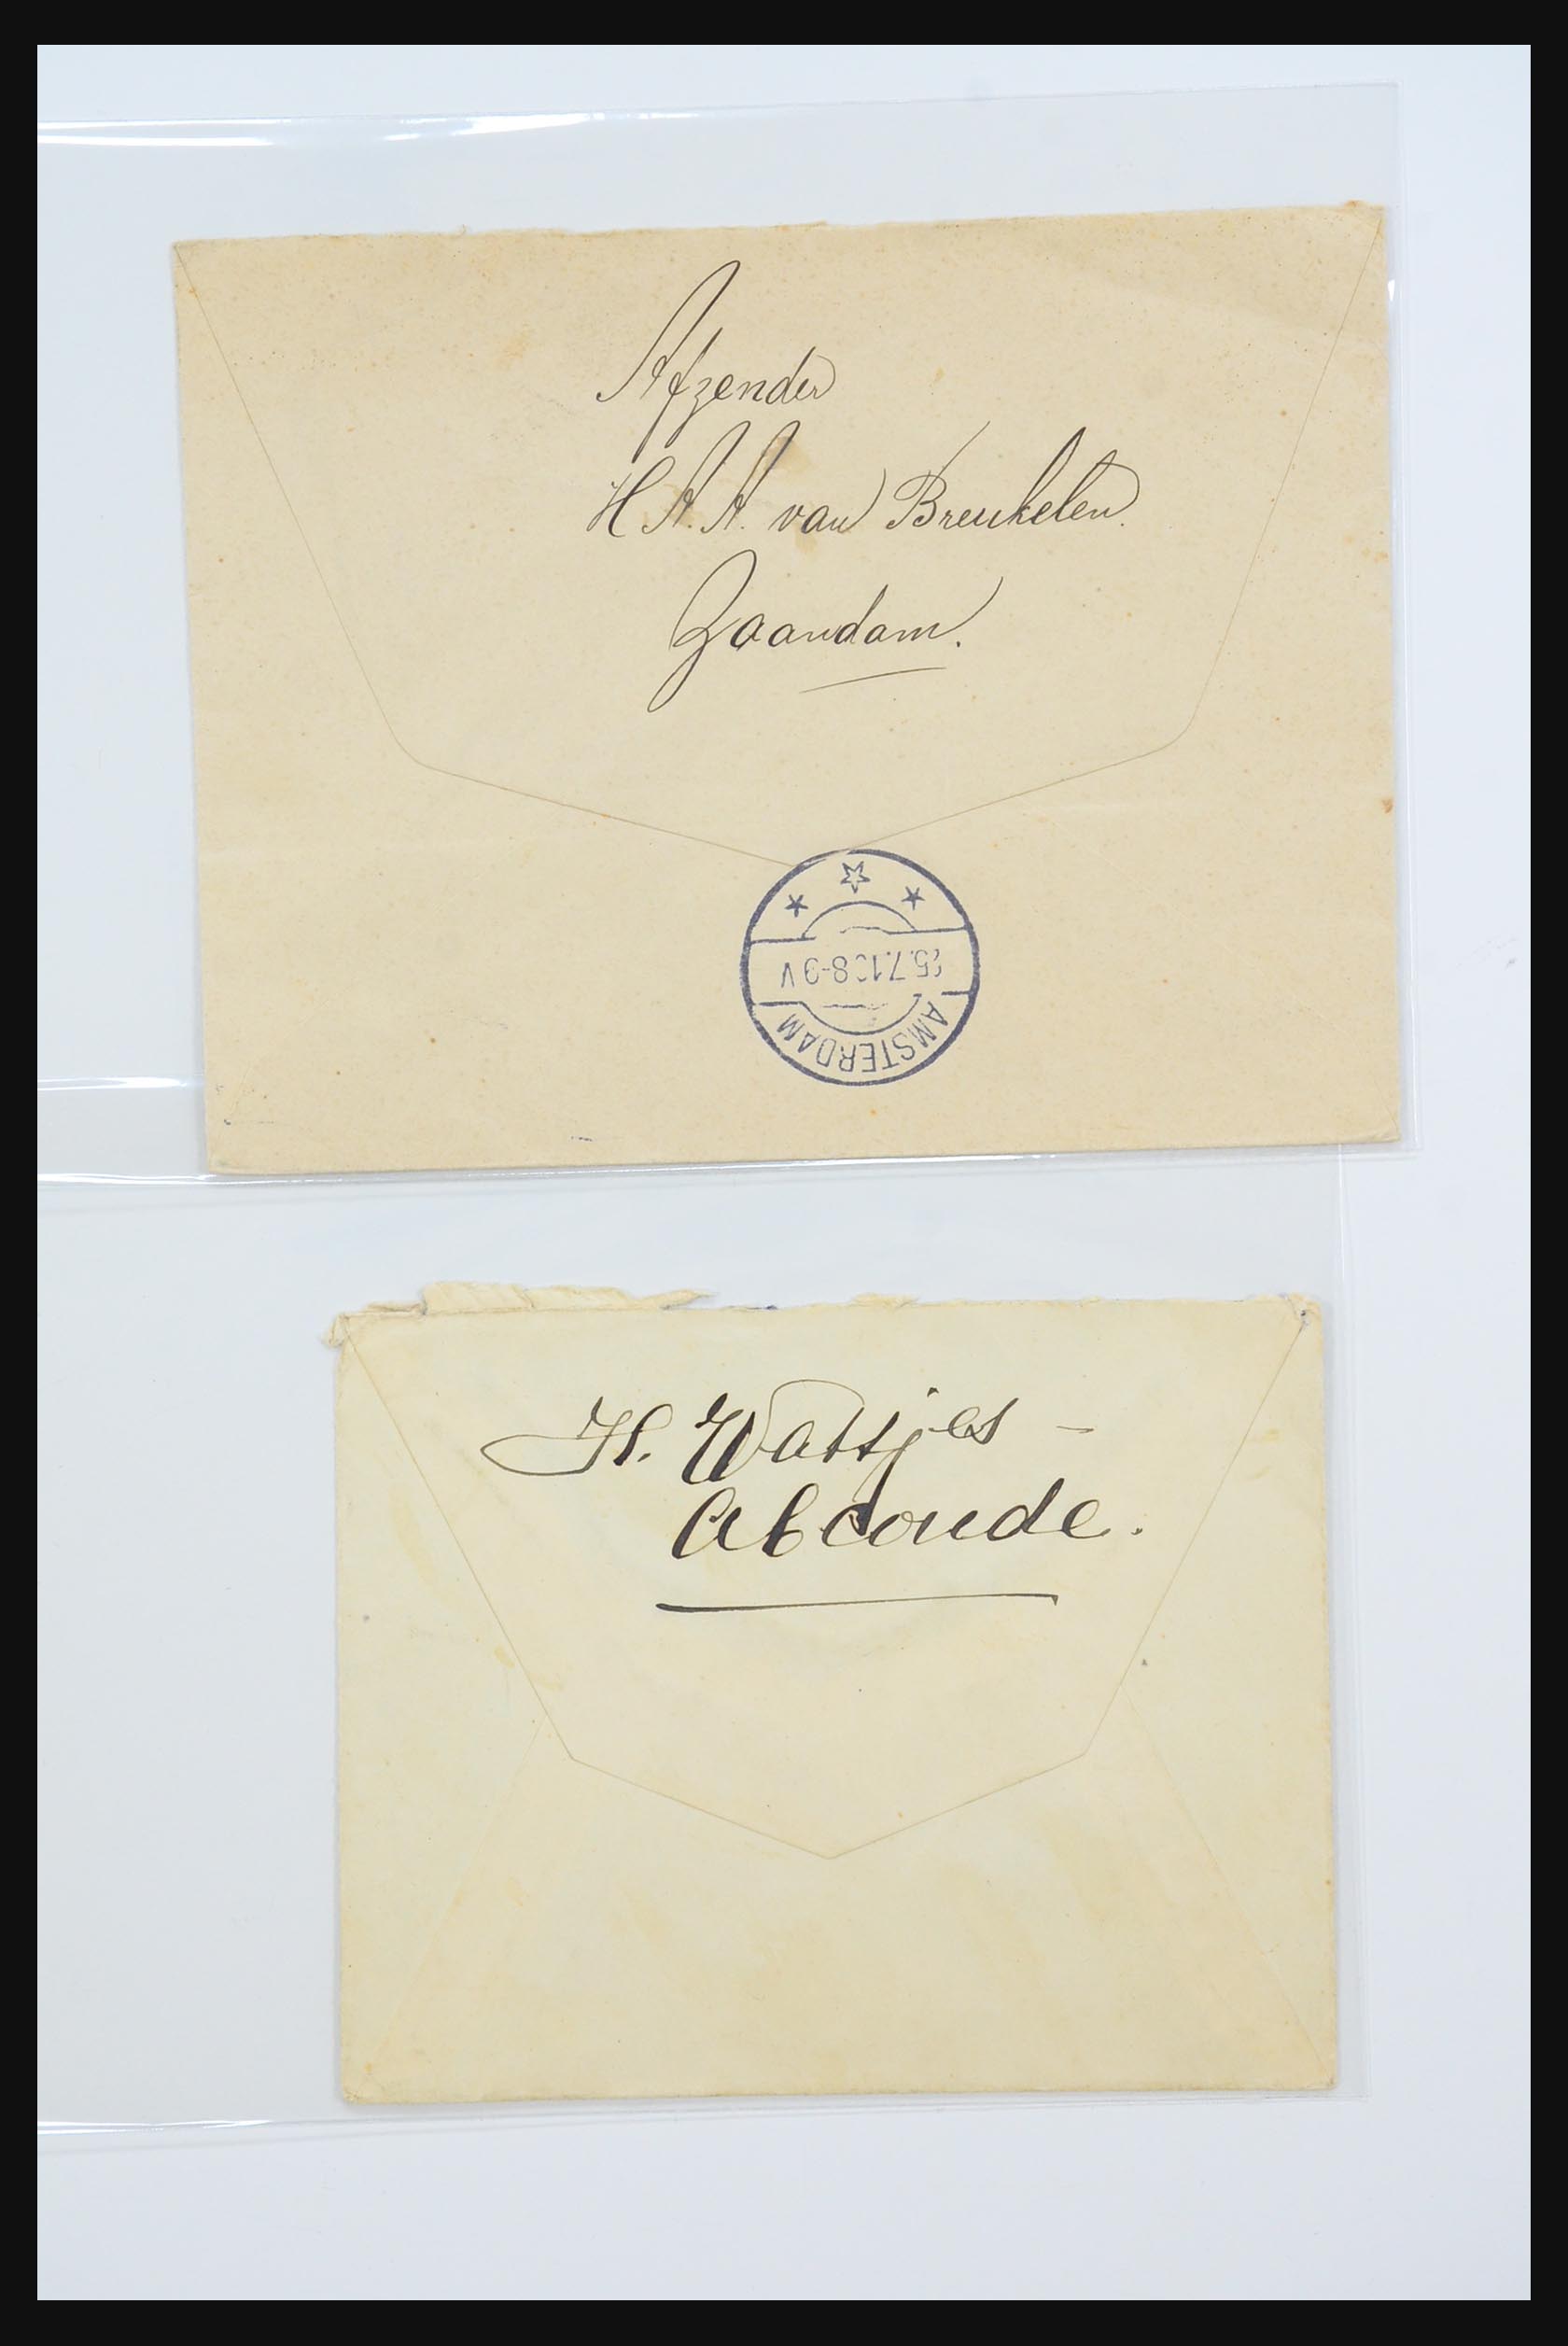 Afzender
H. A. A. van Breukelen.
Zaandam.
AMSTERDAM
H. Wattjes -
Abcoude.